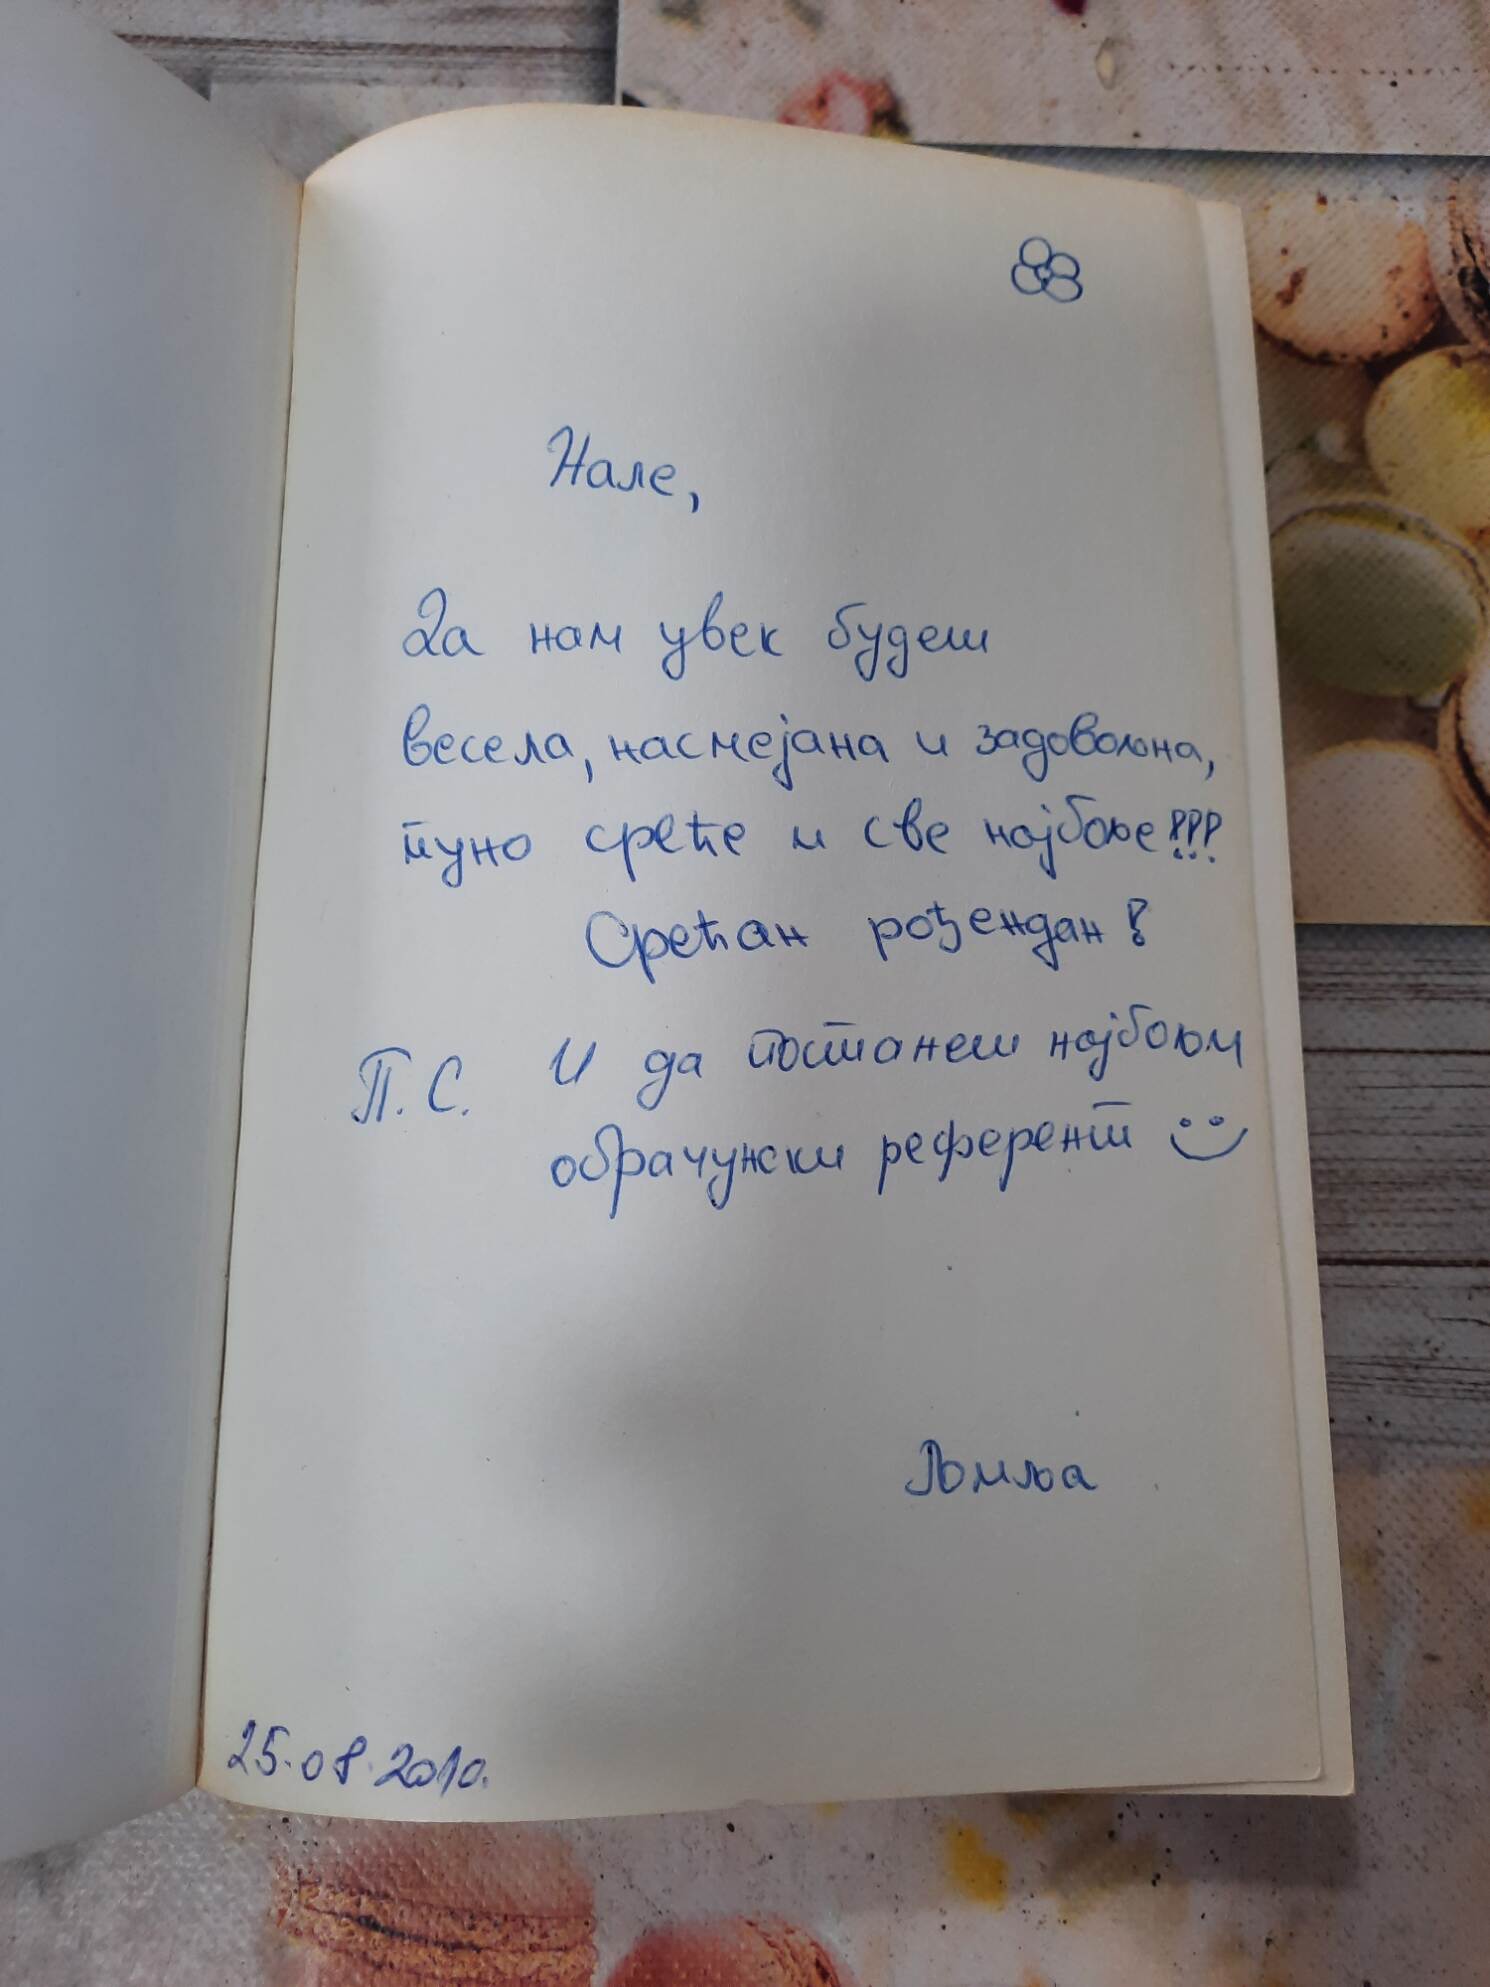 Нале,
Да нам увек будеш
весела, насмејана и задовољна,
пуно среће и све најбоље!!!
Срећан рођендан!
П.С. И да постанеш најбољи
обрачунски референт
Љиља
25.08.2010.